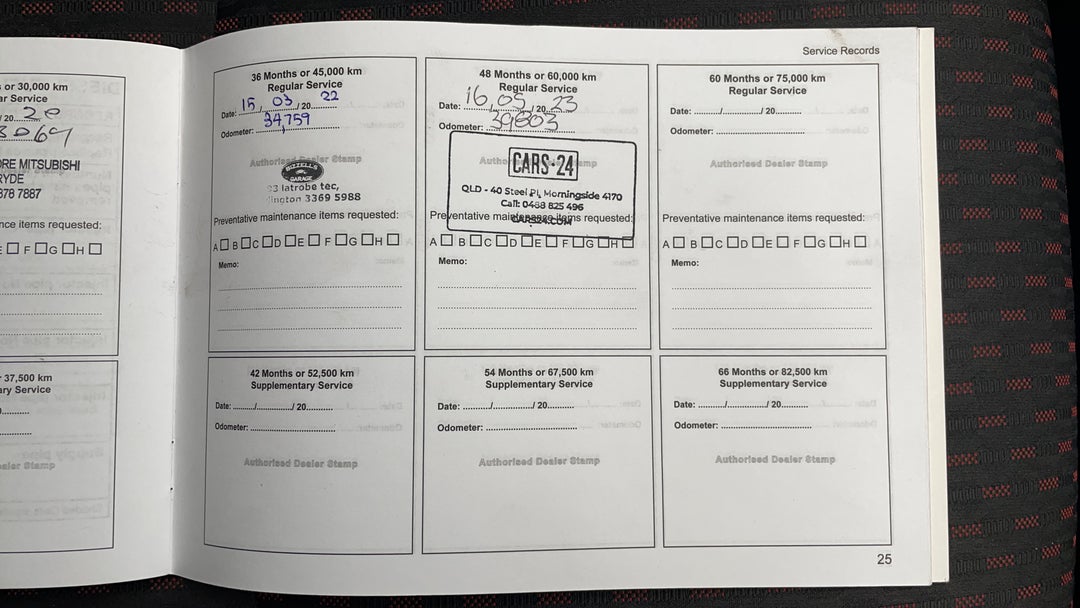 Service Records
or 30,000 km
ar Service
/ 20 20
3064
ORE MITSUBISHI
RYDE
878 7887
nce items requested:
E F G H
37,500 km
ary Service
aler Stamp
36 Months or 45,000 km
Regular Service
Date: 15 / 03 / 20 22
Odometer: 34,759
Authorised Dealer Stamp
GARAGE
23 latrobe tec,
ington 3369 5988
Preventative maintenance items requested:
A B C D E F G H
Memo:
48 Months or 60,000 km
Regular Service
Date: 16 / 05 / 20 23
Odometer: 39803
CARS·24
QLD - 40 Steel Pl, Morningside 4170
Call: 0488 825 496
CARS24.COM
Preventative maintenance items requested:
A B C D E F G H
Memo:
60 Months or 75,000 km
Regular Service
Date: ......../............../ 20.........
Odometer: ..............................
Authorised Dealer Stamp
Preventative maintenance items requested:
A B C D E F G H
Memo:
42 Months or 52,500 km
Supplementary Service
Date: ......../............../ 20.........
Odometer: ..............................
Authorised Dealer Stamp
54 Months or 67,500 km
Supplementary Service
Date: ......../............../ 20.........
Odometer: ..............................
Authorised Dealer Stamp
66 Months or 82,500 km
Supplementary Service
Date: ......../............../ 20.........
Odometer: ..............................
Authorised Dealer Stamp
25